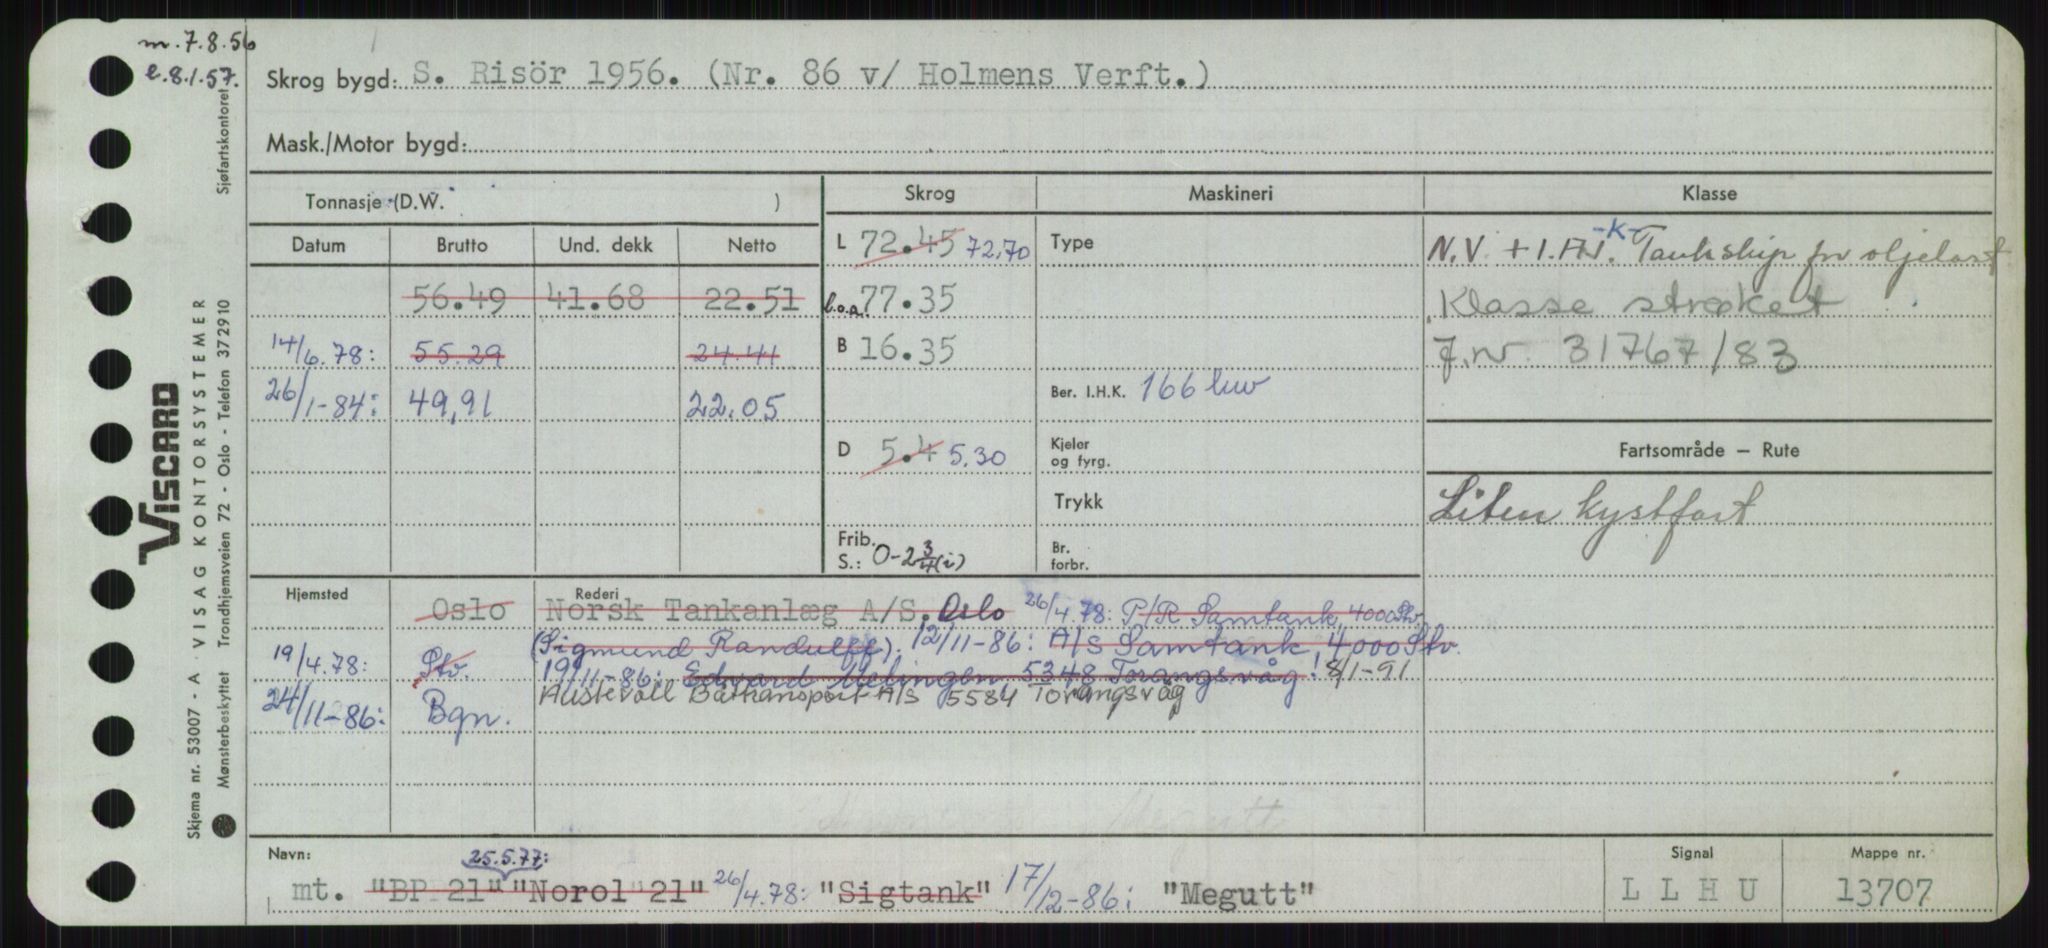 m. 7.8.56
e. 8.1.57.
Skrog bygd: S. Risör 1956. (Nr. 86 v/ Holmens Verft.)
Mask./Motor bygd:
Sjøfartskontoret
Tonnasje (D.W. )
Skrog Maskineri Klasse
Datum Brutto Und. dekk Netto
L 72.45 72,70 Type
N.V. + 1.A.N. -K- Tankship for oljelast
56.49 41.68 22.51
l.o.a. 77.35
Klasse strøket
14/6.78: 55.29 24.41
B 16.35
J.nr. 31767/83
26/1-84: 49,91 22.05
Ber. I.H.K. 166 kw
D 5.4 5.30
Kjeler og fyrg.
Fartsområde — Rute
Trykk
Liten kystfart
Frib. S.: 0-2 3/4 (i)
Br. forbr.
Hjemsted Rederi
Oslo Norsk Tankanlæg A/S. Oslo 26/4.78: P/R Samtank, 4000 Stv.
(Sigmund Randulff). 12/11-86: A/S Samtank, 4000 Stv.
19/4.78: Stv. 19/11-86: Edvard Melingen 5348 Torangsvåg! 8/1-91
Austevoll Båttransport A/S 5584 Torangsvåg
24/11-86: Bgn.
Megutt
Navn: 25.5.77: Signal Mappe nr.
mt. "BP 21" "Norol 21" 26/4.78: "Sigtank" 17/12-86: "Megutt" LLHU 13707
VISCARD
Skjema nr. 53007 - A · VISAG KONTORSYSTEMER
Mønsterbeskyttet Trondhjemsveien 72 - Oslo - Telefon 372910